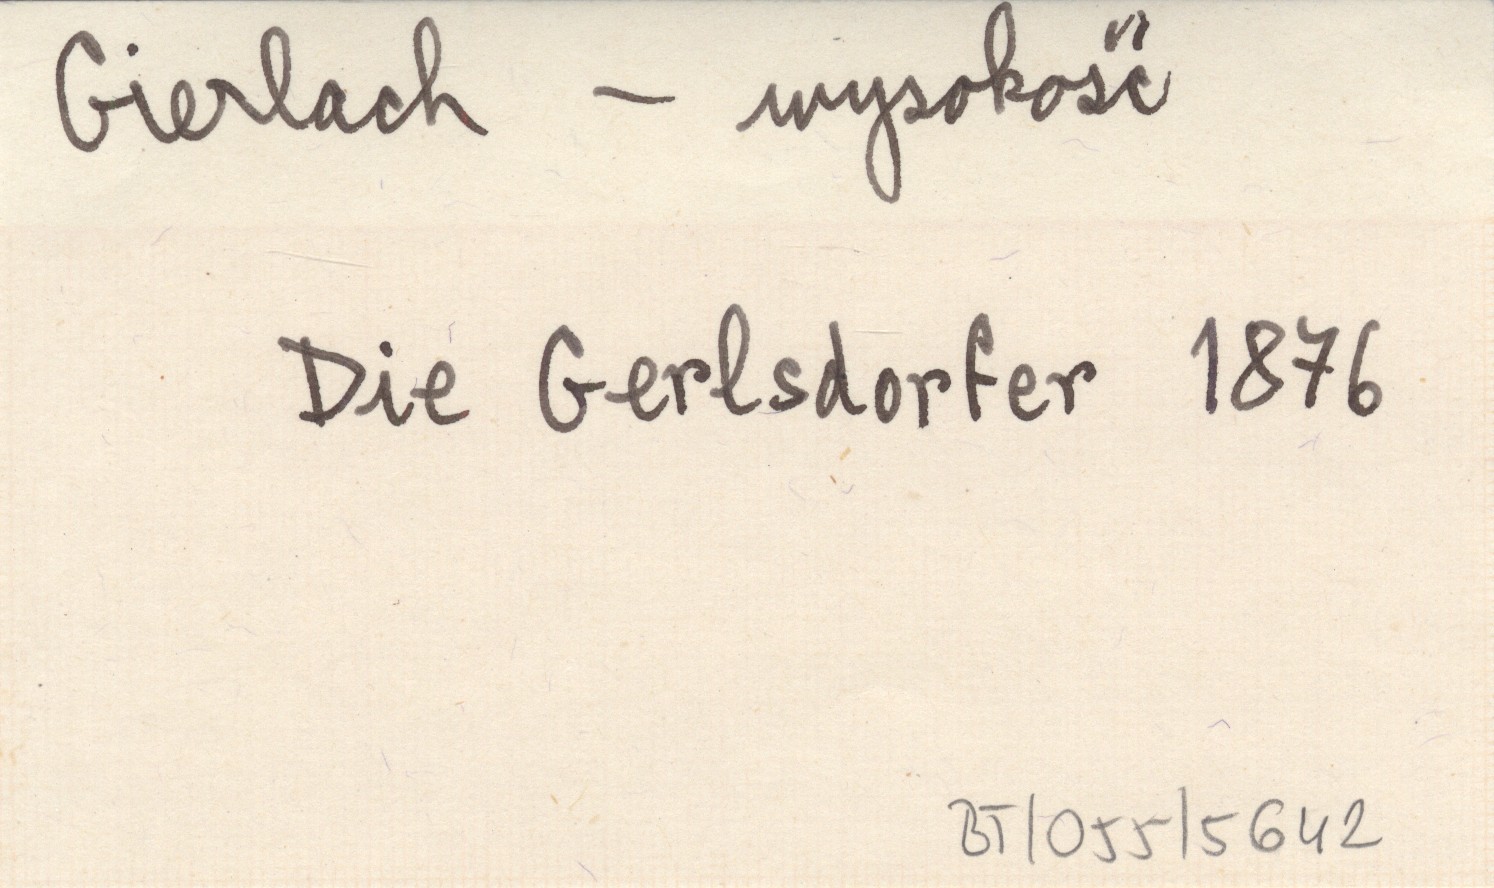 Gierlach – wysokość
Die Gerlsdorfer 1876
BT/055/5642